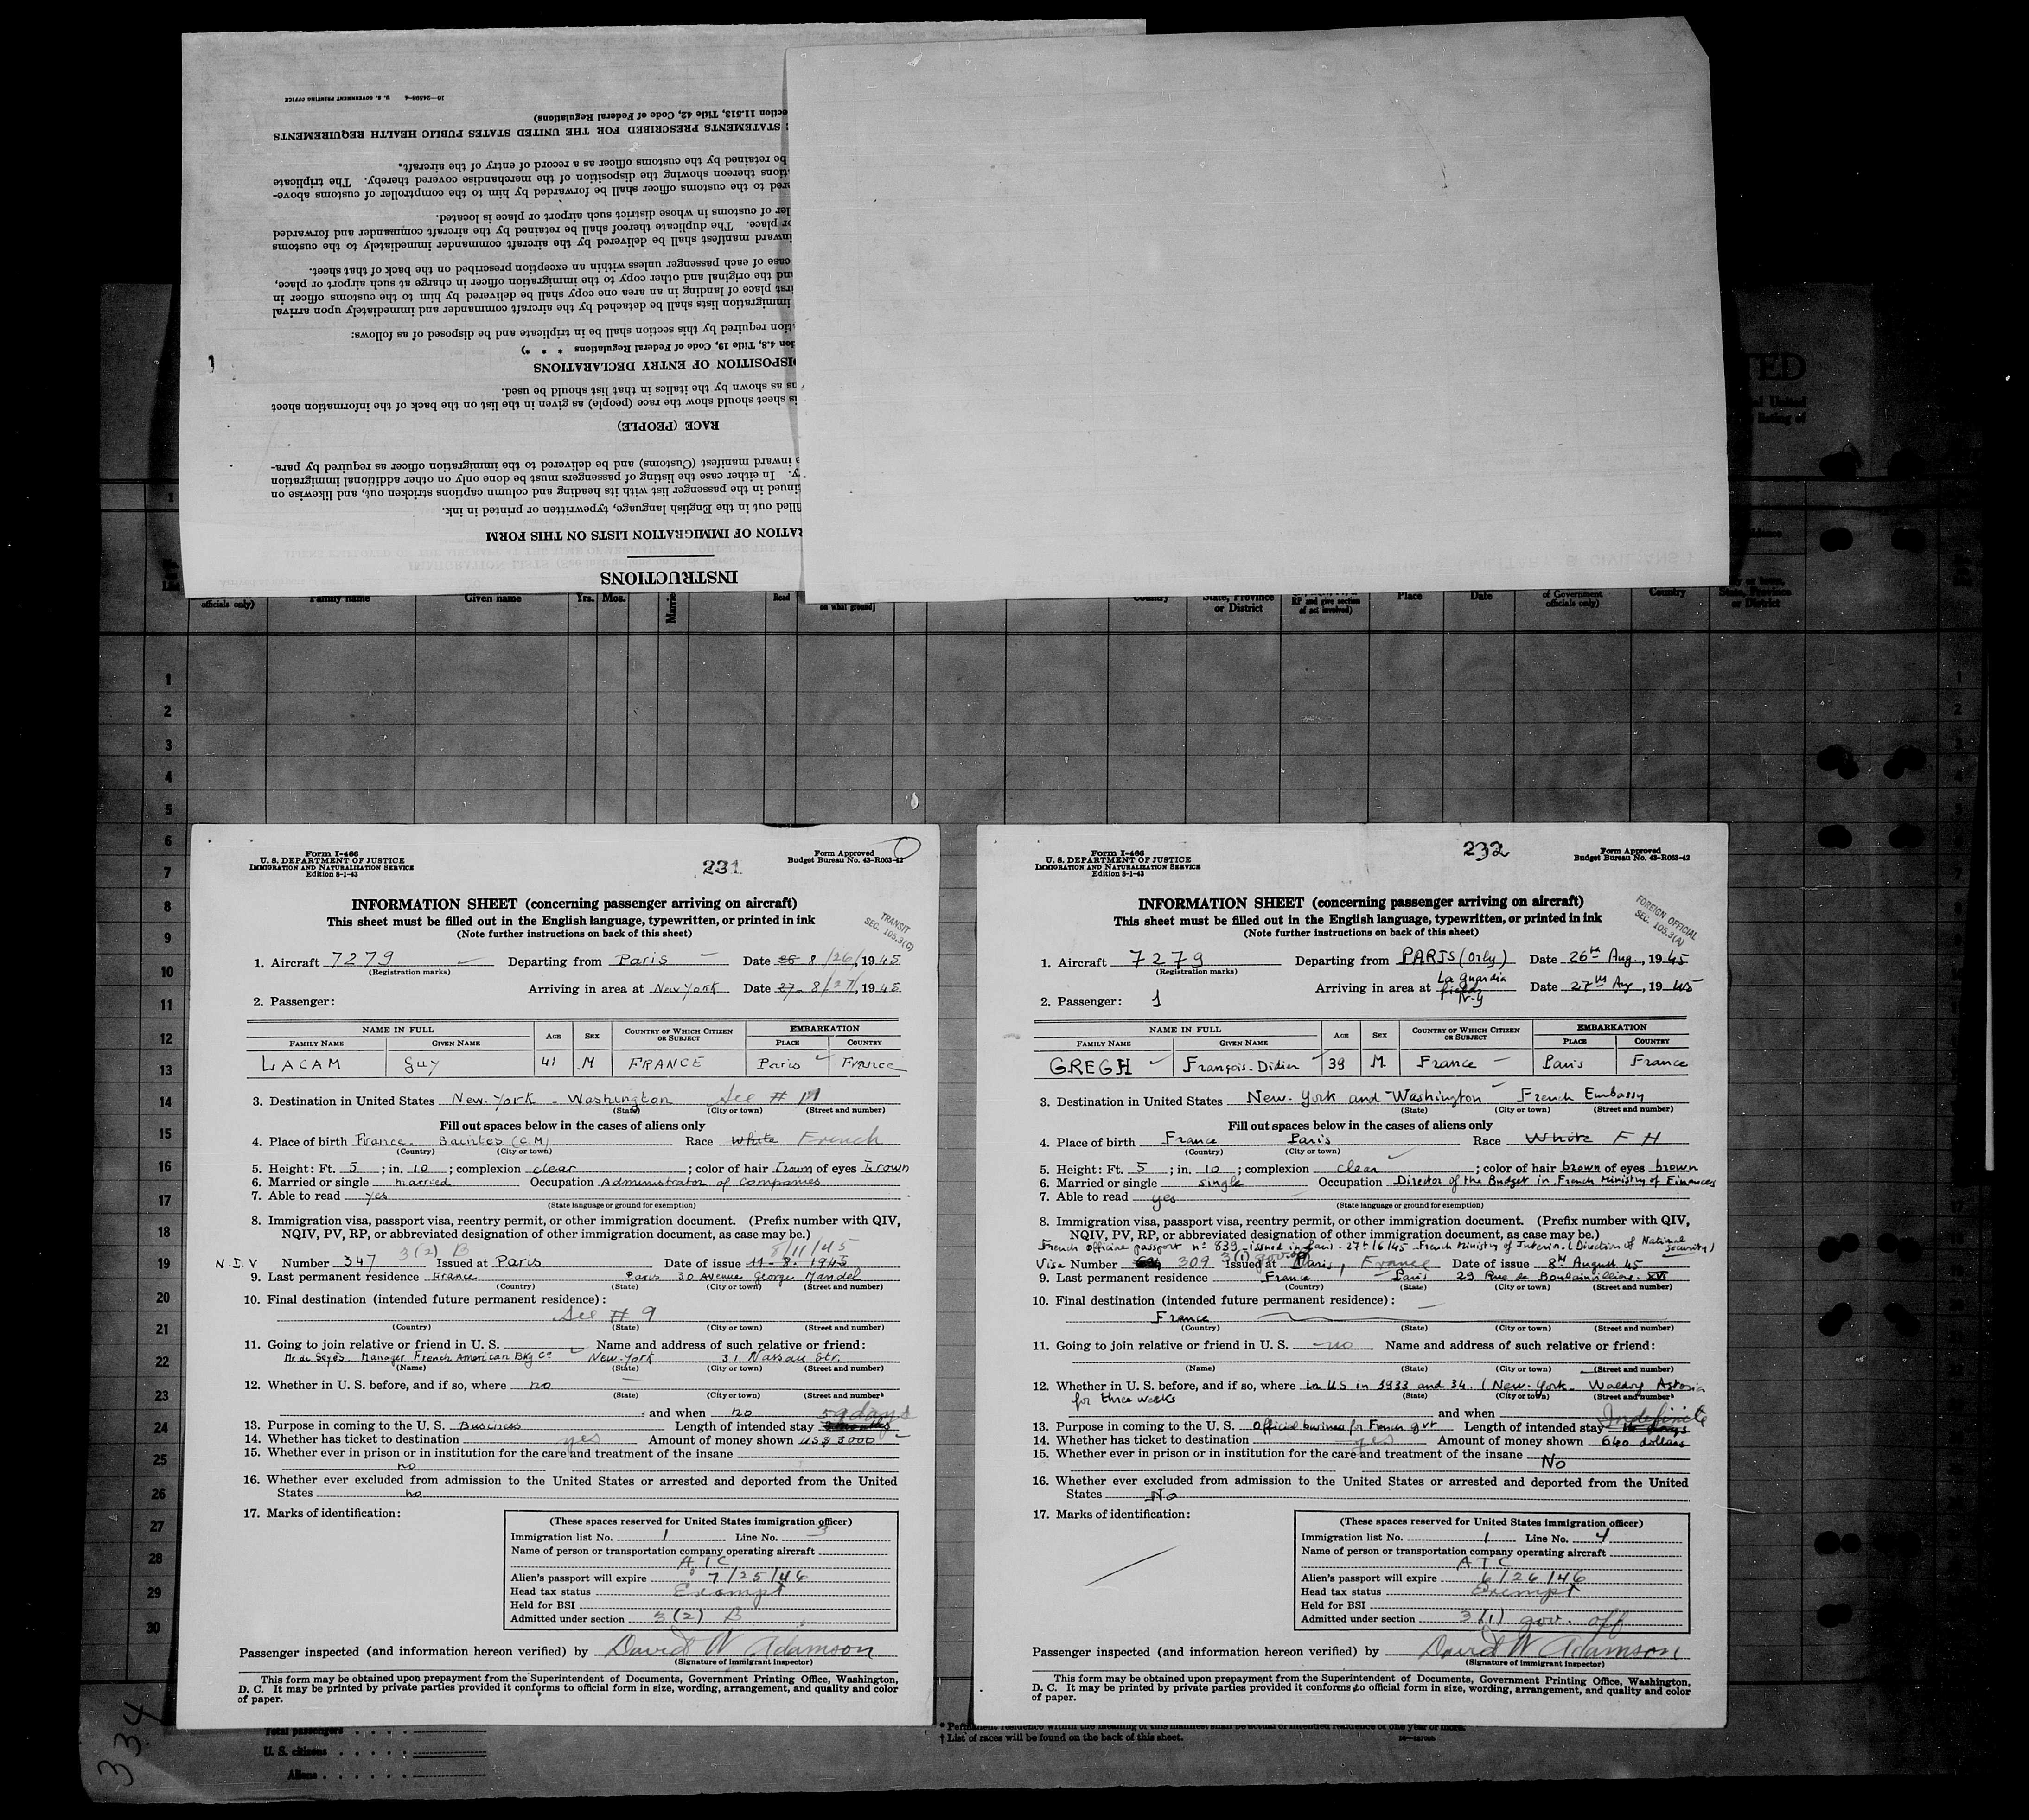 16—24598-4 U. S. GOVERNMENT PRINTING OFFICE
ction 11.513, Title 42, Code of Federal Regulations)
STATEMENTS PRESCRIBED FOR THE UNITED STATES PUBLIC HEALTH REQUIREMENTS
be retained by the customs officer as a record of entry of the aircraft.
tions thereon showing the disposition of the merchandise covered thereby. The triplicate
red to the customs officer shall be forwarded by him to the comptroller of customs above-
ler of customs in whose district such airport or place is located.
or place. The duplicate thereof shall be retained by the aircraft commander and forwarded
inward manifest shall be delivered by the aircraft commander immediately to the customs
case of each passenger unless within an exception prescribed on the back of that sheet.
nd the original and other copy to the immigration officer in charge at such airport or place,
rst place of landing in an area one copy shall be delivered by him to the customs officer in
immigration lists shall be detached by the aircraft commander and immediately upon arrival
tion required by this section shall be in triplicate and be disposed of as follows:
ion 4.8, Title 19, Code of Federal Regulations * * *)
DISPOSITION OF ENTRY DECLARATIONS
ns as shown by the italics in that list should be used.
is sheet should show the race (people) as given in the list on the back of the information sheet
RACE (PEOPLE)
inward manifest (Customs) and be delivered to the immigration officer as required by para-
y. In either case the listing of passengers must be done only on other additional immigration
tinued in the passenger list with its heading and column captions stricken out, and likewise on
illed out in the English language, typewritten or printed in ink.
RATION OF IMMIGRATION LISTS ON THIS FORM
INSTRUCTIONS
TED
officials only) Family name Given name Yrs. Mos. Read on what ground] Country State, Province or District RP and give section of act involved) Place Date of Government officials only) Country State, Province or District
1
2
3
4
5
6
7
8
9
10
11
12
13
14
15
16
17
18
19
20
21
22
23
24
25
26
27
28
29
30
Form I-466
U. S. DEPARTMENT OF JUSTICE
IMMIGRATION AND NATURALIZATION SERVICE
Edition 8-1-43
231
Form Approved
Budget Bureau No. 43-R063-42
INFORMATION SHEET (concerning passenger arriving on aircraft)
This sheet must be filled out in the English language, typewritten, or printed in ink
(Note further instructions on back of this sheet)
TRANSIT
SEC. 105.3(G)
1. Aircraft 7279 Departing from Paris Date 8/26/, 1945
(Registration marks)
Arriving in area at New York Date 27 8/27/, 1945
2. Passenger:
NAME IN FULL AGE SEX COUNTRY OF WHICH CITIZEN OR SUBJECT EMBARKATION
FAMILY NAME GIVEN NAME PLACE COUNTRY
LACAM Guy 41 M FRANCE Paris France
3. Destination in United States New-York - Washington See #
(State) (City or town) (Street and number)
Fill out spaces below in the cases of aliens only
4. Place of birth France. Saintes (C.M) Race White French
(Country) (City or town)
5. Height: Ft. 5 ; in. 10 ; complexion clear ; color of hair brown of eyes brown
6. Married or single married Occupation Administrator of Companies
7. Able to read yes
(State language or ground for exemption)
8. Immigration visa, passport visa, reentry permit, or other immigration document. (Prefix number with QIV,
NQIV, PV, RP, or abbreviated designation of other immigration document, as case may be.)
3(2) B 8/11/45
N.I.V Number 347 Issued at Paris Date of issue 11-8-1945
9. Last permanent residence France Paris 30 Avenue George Mandel
(Country) (State) (City or town) (Street and number)
10. Final destination (intended future permanent residence):
See # 9
(Country) (State) (City or town) (Street and number)
11. Going to join relative or friend in U. S. Name and address of such relative or friend:
Mr de Seyes. Manager French American Bkg Co New-York 31 Nassau Str.
(Name) (State) (City or town) (Street and number)
12. Whether in U. S. before, and if so, where no
(State) (City or town) (Street and number)
and when no 59 days
13. Purpose in coming to the U. S. Business Length of intended stay
14. Whether has ticket to destination yes Amount of money shown US$ 3000
15. Whether ever in prison or in institution for the care and treatment of the insane
no
16. Whether ever excluded from admission to the United States or arrested and deported from the United
States no
17. Marks of identification:
(These spaces reserved for United States immigration officer)
Immigration list No. 1 Line No. 3
Name of person or transportation company operating aircraft
ATC
Alien's passport will expire 7/25/46
Head tax status Exempt
Held for BSI
Admitted under section 3(2) B
Passenger inspected (and information hereon verified) by David W Adamson
(Signature of immigrant inspector)
This form may be obtained upon prepayment from the Superintendent of Documents, Government Printing Office, Washington,
D. C. It may be printed by private parties provided it conforms to official form in size, wording, arrangement, and quality and color
of paper.
Form I-466
U. S. DEPARTMENT OF JUSTICE
IMMIGRATION AND NATURALIZATION SERVICE
Edition 8-1-43
232
Form Approved
Budget Bureau No. 43-R063-42
INFORMATION SHEET (concerning passenger arriving on aircraft)
This sheet must be filled out in the English language, typewritten, or printed in ink
(Note further instructions on back of this sheet)
FOREIGN OFFICIAL
SEC. 105.3(A)
1. Aircraft 7279 Departing from PARIS (Orly) Date 26th Aug., 1945
(Registration marks)
Arriving in area at La Guardia field N-Y Date 27th Aug, 1945
2. Passenger: 1
NAME IN FULL AGE SEX COUNTRY OF WHICH CITIZEN OR SUBJECT EMBARKATION
FAMILY NAME GIVEN NAME PLACE COUNTRY
GREGH François-Didier 39 M France Paris France
3. Destination in United States New-York and Washington French Embassy
(State) (City or town) (Street and number)
Fill out spaces below in the cases of aliens only
4. Place of birth France Paris Race White F H
(Country) (City or town)
5. Height: Ft. 5 ; in. 10 ; complexion clear ; color of hair brown of eyes brown
6. Married or single single Occupation Director of the Budget in French Ministry of Finances
7. Able to read yes
(State language or ground for exemption)
8. Immigration visa, passport visa, reentry permit, or other immigration document. (Prefix number with QIV,
NQIV, PV, RP, or abbreviated designation of other immigration document, as case may be.)
French Official passport no 839 issued in Paris. 27th/6/45 French Ministry of Interior (Direction of National Security)
3(1) gov off
Visa Number 309 Issued at Paris, France Date of issue 8th August 45
9. Last permanent residence France Paris 29 Rue de Boulainvilliers. XVI
(Country) (State) (City or town) (Street and number)
10. Final destination (intended future permanent residence):
France
(Country) (State) (City or town) (Street and number)
11. Going to join relative or friend in U. S. no Name and address of such relative or friend:
(Name) (State) (City or town) (Street and number)
12. Whether in U. S. before, and if so, where in US in 1933 and 34. (New-York - Waldorf Astoria
(State) (City or town) (Street and number)
for three weeks
and when Indefinite
13. Purpose in coming to the U. S. Official business for French gvt Length of intended stay 15 days
14. Whether has ticket to destination yes Amount of money shown 640 dollars
15. Whether ever in prison or in institution for the care and treatment of the insane
No
16. Whether ever excluded from admission to the United States or arrested and deported from the United
States No
17. Marks of identification:
(These spaces reserved for United States immigration officer)
Immigration list No. 1 Line No. 4
Name of person or transportation company operating aircraft
ATC
Alien's passport will expire 6/26/46
Head tax status Exempt
Held for BSI
Admitted under section 3(1) gov. off
Passenger inspected (and information hereon verified) by David W Adamson
(Signature of immigrant inspector)
This form may be obtained upon prepayment from the Superintendent of Documents, Government Printing Office, Washington,
D. C. It may be printed by private parties provided it conforms to official form in size, wording, arrangement, and quality and color
of paper.
334
Total passengers
U. S. citizens
Aliens
* Permanent residence within the meaning of this manifest shall be actual or intended residence of one year or more.
† List of races will be found on the back of this sheet.